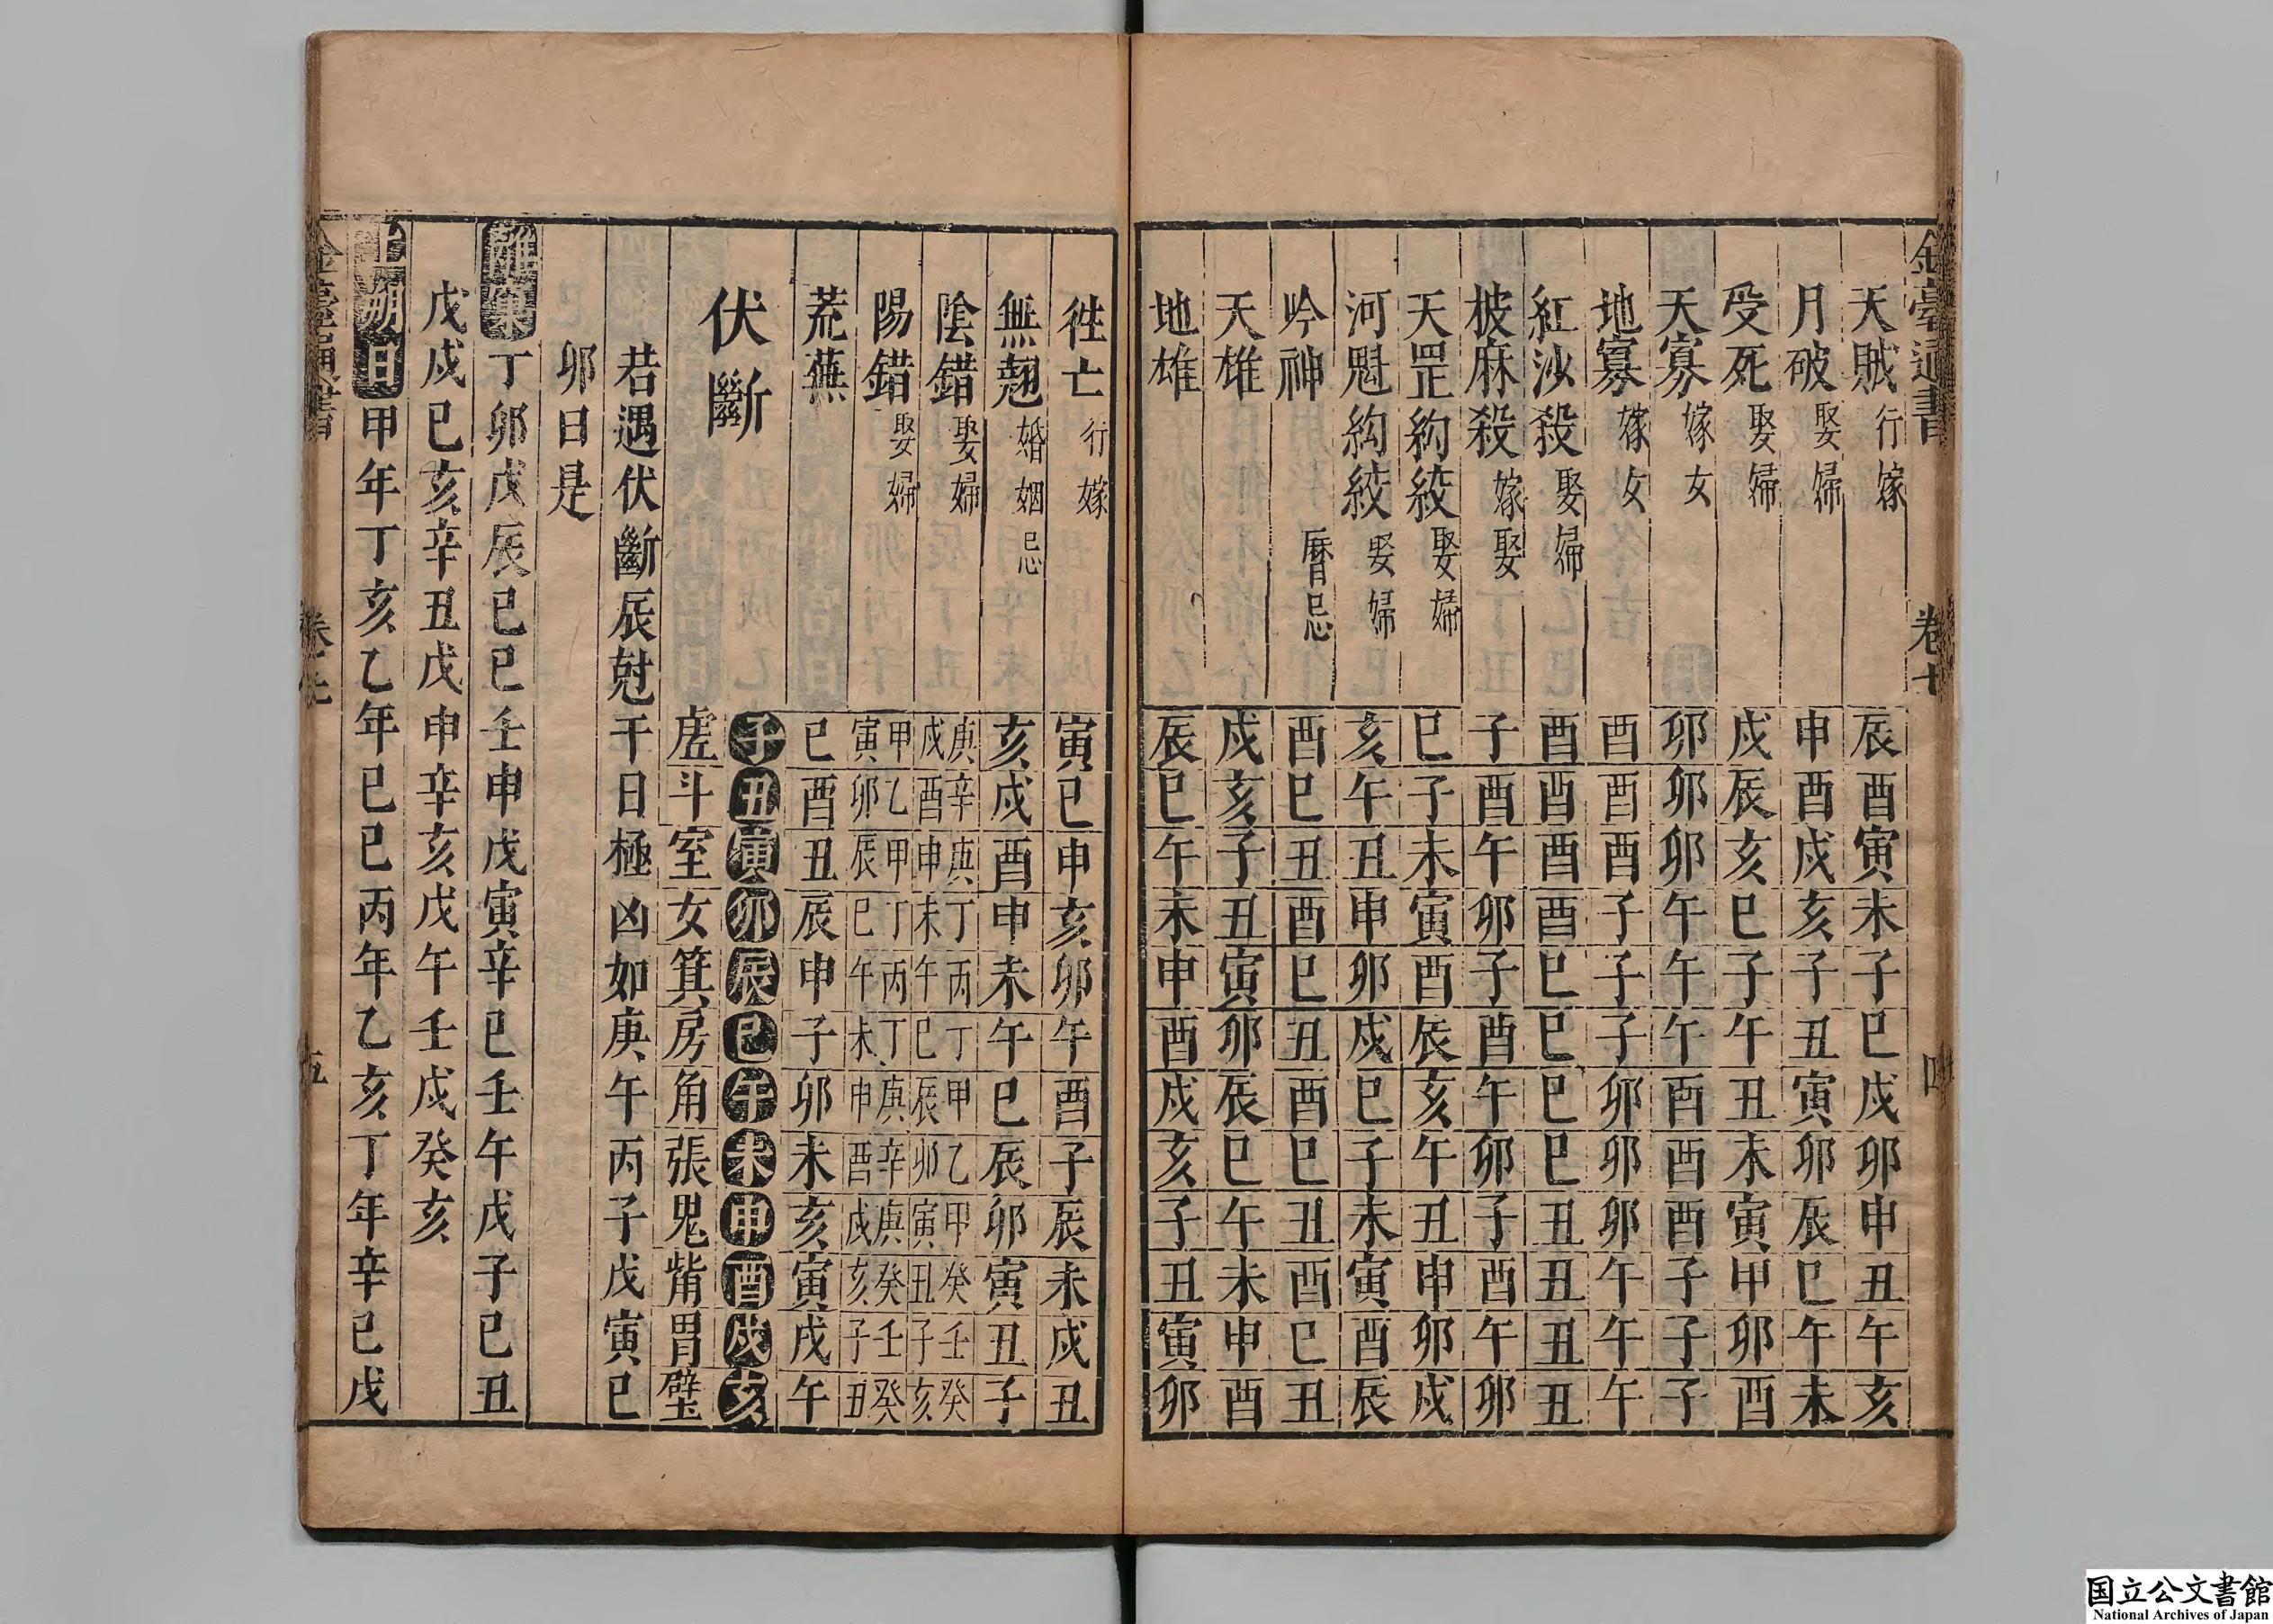 天賊 行嫁 辰酉寅未子巳戌卯申丑午亥
月破 娶婦 申酉戌亥子丑寅卯辰巳午未
受死 娶婦 戌辰亥巳子午丑未寅甲卯酉
天寡 嫁女 卯卯卯午午午酉酉酉子子子
地寡 嫁女 酉酉酉子子子卯卯卯午午午
紅沙殺 娶婦 酉酉酉酉巳巳巳巳丑丑丑丑
披麻殺 嫁娶 子酉午卯子酉午卯子酉午卯
天罡約絞 娶婦 巳子未寅酉辰亥午丑申卯戌
河魁絇絞 娶婦 亥午丑申卯戌巳子未寅酉辰
吟神 曆忌 酉巳丑酉巳丑酉巳丑酉巳丑
天雄 戌亥子丑寅卯辰巳午未申酉
地雄 辰巳午未申酉戌亥子丑寅卯
卷七
四
徃亡 行嫁 寅巳申亥卯午酉子辰未戌丑
無翹 婚姻忌 亥戌酉申未午巳辰卯寅丑子
陰錯 娶婦 庚戌 辛酉 庚申 丁未 丙午 丁巳 甲辰 乙卯 甲寅 癸丑 壬子 癸亥
陽錯 娶婦 甲寅 乙卯 甲辰 丁巳 丙午 丁未 庚申 辛酉 庚戌 癸亥 壬子 癸丑
荒蕪 巳酉丑辰申子卯未亥寅戌午
伏斷 子丑寅卯辰巳午未申酉戌亥
虗斗室女箕房角張鬼觜胃壁
若遇伏斷辰尅干日極凶如庚午丙子戊寅巳
卯日是
離窠丁卯戊辰巳巳壬申戊寅辛巳壬午戊子巳丑
戊戌巳亥辛丑戊申辛亥戊午壬戌癸亥
上朔日甲年丁亥乙年巳巳丙年乙亥丁年辛巳戊
五
国立公文書館
National Archives of Japan